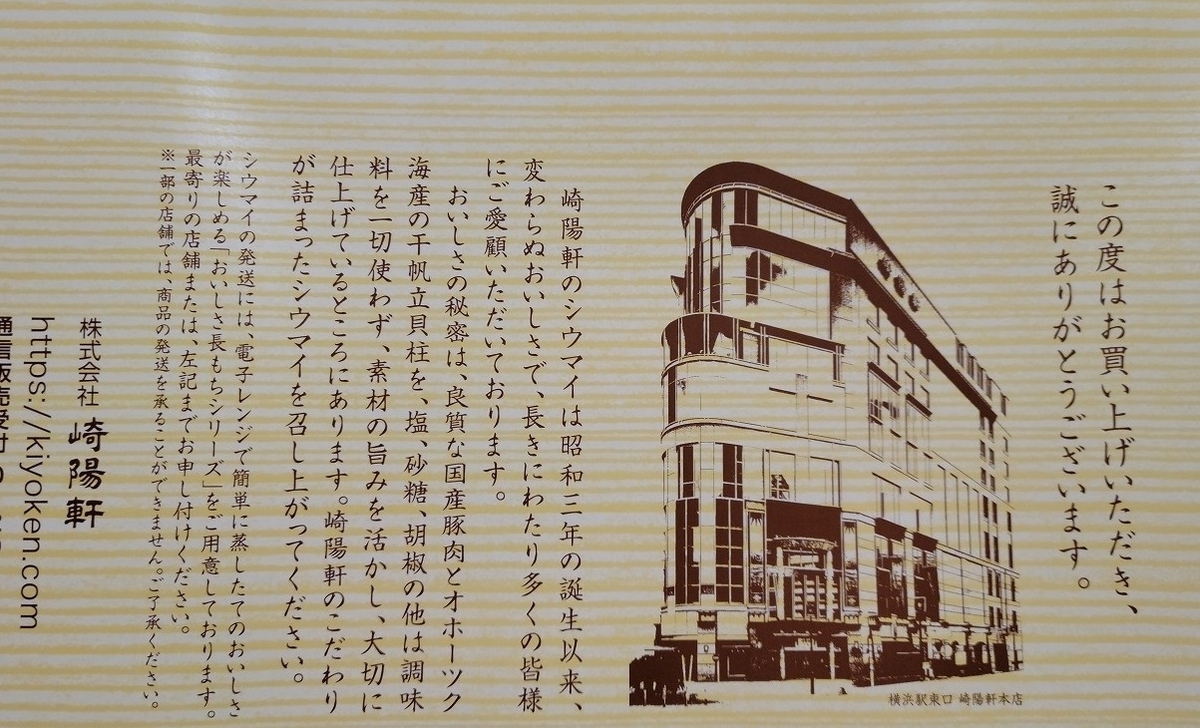 この度はお買い上げいただき、
誠にありがとうございます。
横浜駅東口 崎陽軒本店
崎陽軒のシウマイは昭和三年の誕生以来、
変わらぬおいしさで、長きにわたり多くの皆様
にご愛顧いただいております。
おいしさの秘密は、良質な国産豚肉とオホーツク
海産の干帆立貝柱を、塩、砂糖、胡椒の他は調味
料を一切使わず、素材の旨みを活かし、大切に
仕上げているところにあります。崎陽軒のこだわり
が詰まったシウマイを召し上がってください。
シウマイの発送には、電子レンジで簡単に蒸したてのおいしさ
が楽しめる「おいしさ長もちシリーズ」をご用意しております。
最寄りの店舗または、左記までお申し付けください。
※一部の店舗では、商品の発送を承ることができません。ご了承ください。
株式会社 崎陽軒
https://kiyoken.com
通信販売受付